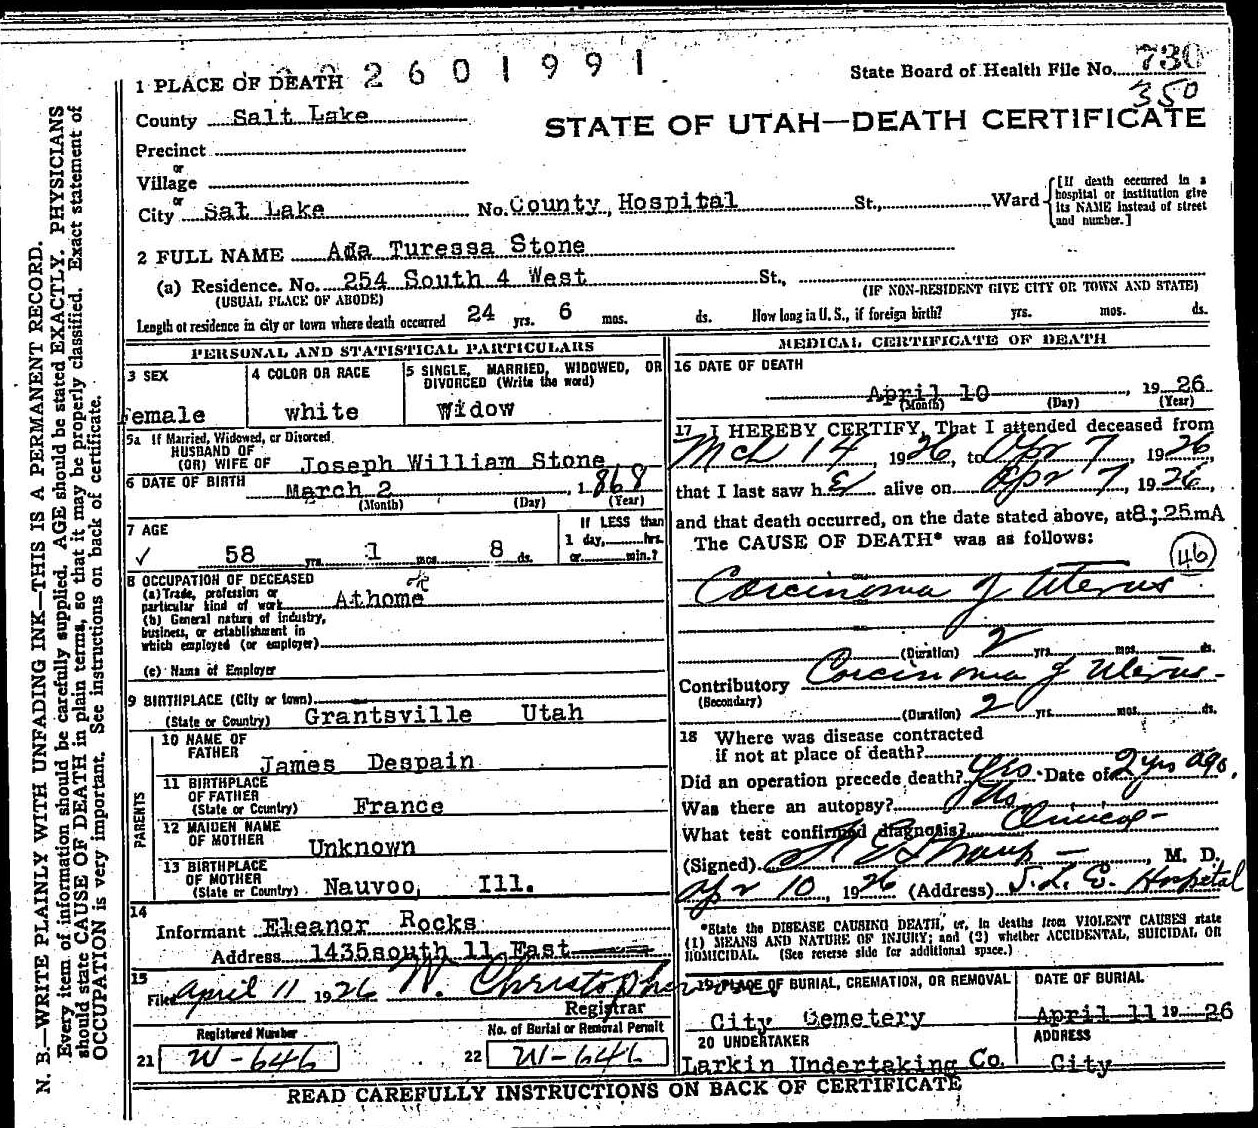 2601991
State Board of Health File No. 730
350
1 PLACE OF DEATH
County Salt Lake
STATE OF UTAH—DEATH CERTIFICATE
Precinct
or
Village
or
City Salt Lake No. County Hospital St., Ward
[If death occurred in a hospital or institution give its NAME instead of street and number.]
2 FULL NAME Ada Turessa Stone
(a) Residence. No. 254 South 4 West St.,
(USUAL PLACE OF ABODE) (IF NON-RESIDENT GIVE CITY OR TOWN AND STATE)
Length of residence in city or town where death occurred 24 yrs. 6 mos. ds. How long in U. S., if foreign birth? yrs. mos. ds.
PERSONAL AND STATISTICAL PARTICULARS
3 SEX
Female
4 COLOR OR RACE
white
5 SINGLE, MARRIED, WIDOWED, OR
DIVORCED (Write the word)
Widow
5a If Married, Widowed, or Divorced
HUSBAND OF
(OR) WIFE OF Joseph William Stone
6 DATE OF BIRTH March 2, 1868
(Month) (Day) (Year)
7 AGE
✓ 58 yrs. 1 mos. 8 ds.
If LESS than
1 day, hrs.
or min.?
8 OCCUPATION OF DECEASED
(a) Trade, profession or
particular kind of work At home
(b) General nature of industry,
business, or establishment in
which employed (or employer)
(c) Name of Employer
9 BIRTHPLACE (City or town)
(State or Country) Grantsville Utah
PARENTS
10 NAME OF
FATHER James Despain
11 BIRTHPLACE
OF FATHER
(State or Country) France
12 MAIDEN NAME
OF MOTHER Unknown
13 BIRTHPLACE
OF MOTHER
(State or Country) Nauvoo, Ill.
14
Informant Eleanor Rocks
Address 1435 south 11 East
15
Filed April 11 1926 W. Christopherson
Registrar
Registered Number
21 W-646
No. of Burial or Removal Permit
22 W-646
MEDICAL CERTIFICATE OF DEATH
16 DATE OF DEATH
April 10, 1926
(Month) (Day) (Year)
17 I HEREBY CERTIFY, That I attended deceased from
Mch 14, 1926, to Apr 7, 1926
that I last saw her alive on Apr 7, 1926,
and that death occurred, on the date stated above, at 8:25mA
The CAUSE OF DEATH* was as follows:
46
Carcinoma of Uterus
(Duration) 2 yrs. mos. ds.
Contributory Carcinoma of Uterus
(Secondary)
(Duration) 2 yrs. mos. ds.
18 Where was disease contracted
if not at place of death?
Did an operation precede death? Yes Date of 2 yrs ago.
Was there an autopsy?
What test confirmed diagnosis? Clinical
(Signed) M. D.
Apr 10, 1926 (Address) S. L. C. Hospital
*State the DISEASE CAUSING DEATH, or, in deaths from VIOLENT CAUSES state
(1) MEANS AND NATURE OF INJURY; and (2) whether ACCIDENTAL, SUICIDAL OR
HOMICIDAL. (See reverse side for additional space.)
19 PLACE OF BURIAL, CREMATION, OR REMOVAL
City Cemetery
DATE OF BURIAL
April 11 1926
20 UNDERTAKER
Larkin Undertaking Co.
ADDRESS
City
READ CAREFULLY INSTRUCTIONS ON BACK OF CERTIFICATE
N. B.—WRITE PLAINLY WITH UNFADING INK—THIS IS A PERMANENT RECORD.
Every item of information should be carefully supplied. AGE should be stated EXACTLY. PHYSICIANS
should state CAUSE OF DEATH in plain terms, so that it may be properly classified. Exact statement of
OCCUPATION is very important. See instructions on back of certificate.